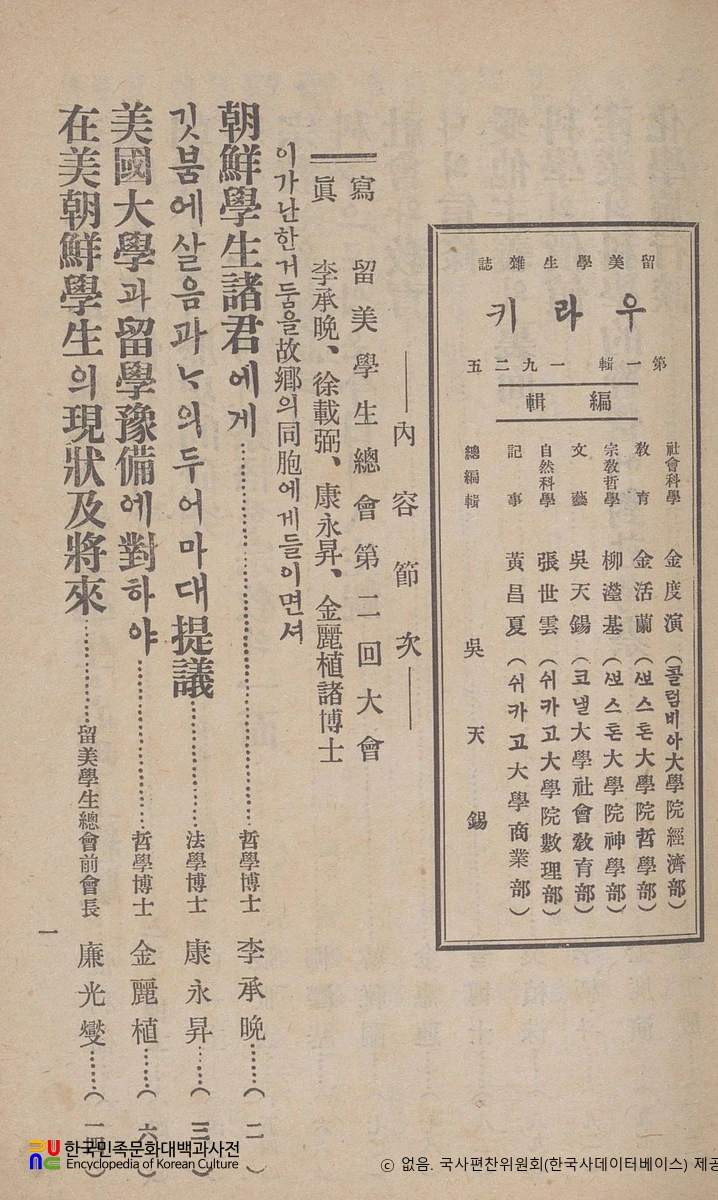 留美學生雜誌
우라키
第一輯 一九二五
編輯
社會科學 金度演(콜럼비아大學院經濟部)
敎育 金活蘭(ᄲᅩ스톤大學院哲學部)
宗敎哲學 柳瀅基(ᄲᅩ스톤大學院神學部)
文藝 吳天錫(코넬大學社會敎育部)
自然科學 張世雲(쉬카고大學院數理部)
記事 黃昌夏(쉬카고大學商業部)
總編輯 吳天錫
——內容節次——
寫眞 留美學生總會第二回大會
李承晩、徐載弼、康永昇、金麗植諸博士
이가난한거둠을故鄕의同胞에게들이면셔
朝鮮學生諸君에게……哲學博士 李承晩……(二)
깃붐에살음과ᄂᆞ의두어마대提議……法學博士 康永昇……(三)
美國大學과留學豫備에對하야……哲學博士 金麗植……(六)
在美朝鮮學生의現狀及將來……留美學生總會前會長 廉光燮……(一四)
一
한국민족문화대백과사전
Encyclopedia of Korean Culture
ⓒ 없음. 국사편찬위원회(한국사데이터베이스) 제공